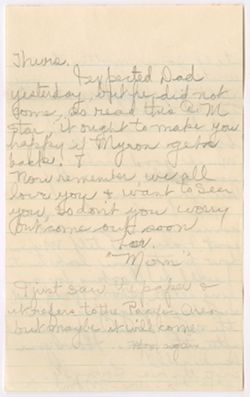 Thurs.
I expected Dad
yesterday, but he did not
come, so read this A.M.
Star, it ought to make you
happy if Myron gets
back. T
Now remember we all
love you & want to see
you, so don't you worry
but come out soon
Lov.
"Mom"
I just saw the paper &
it refers to the Pacific Area
but maybe it will come
Mom again